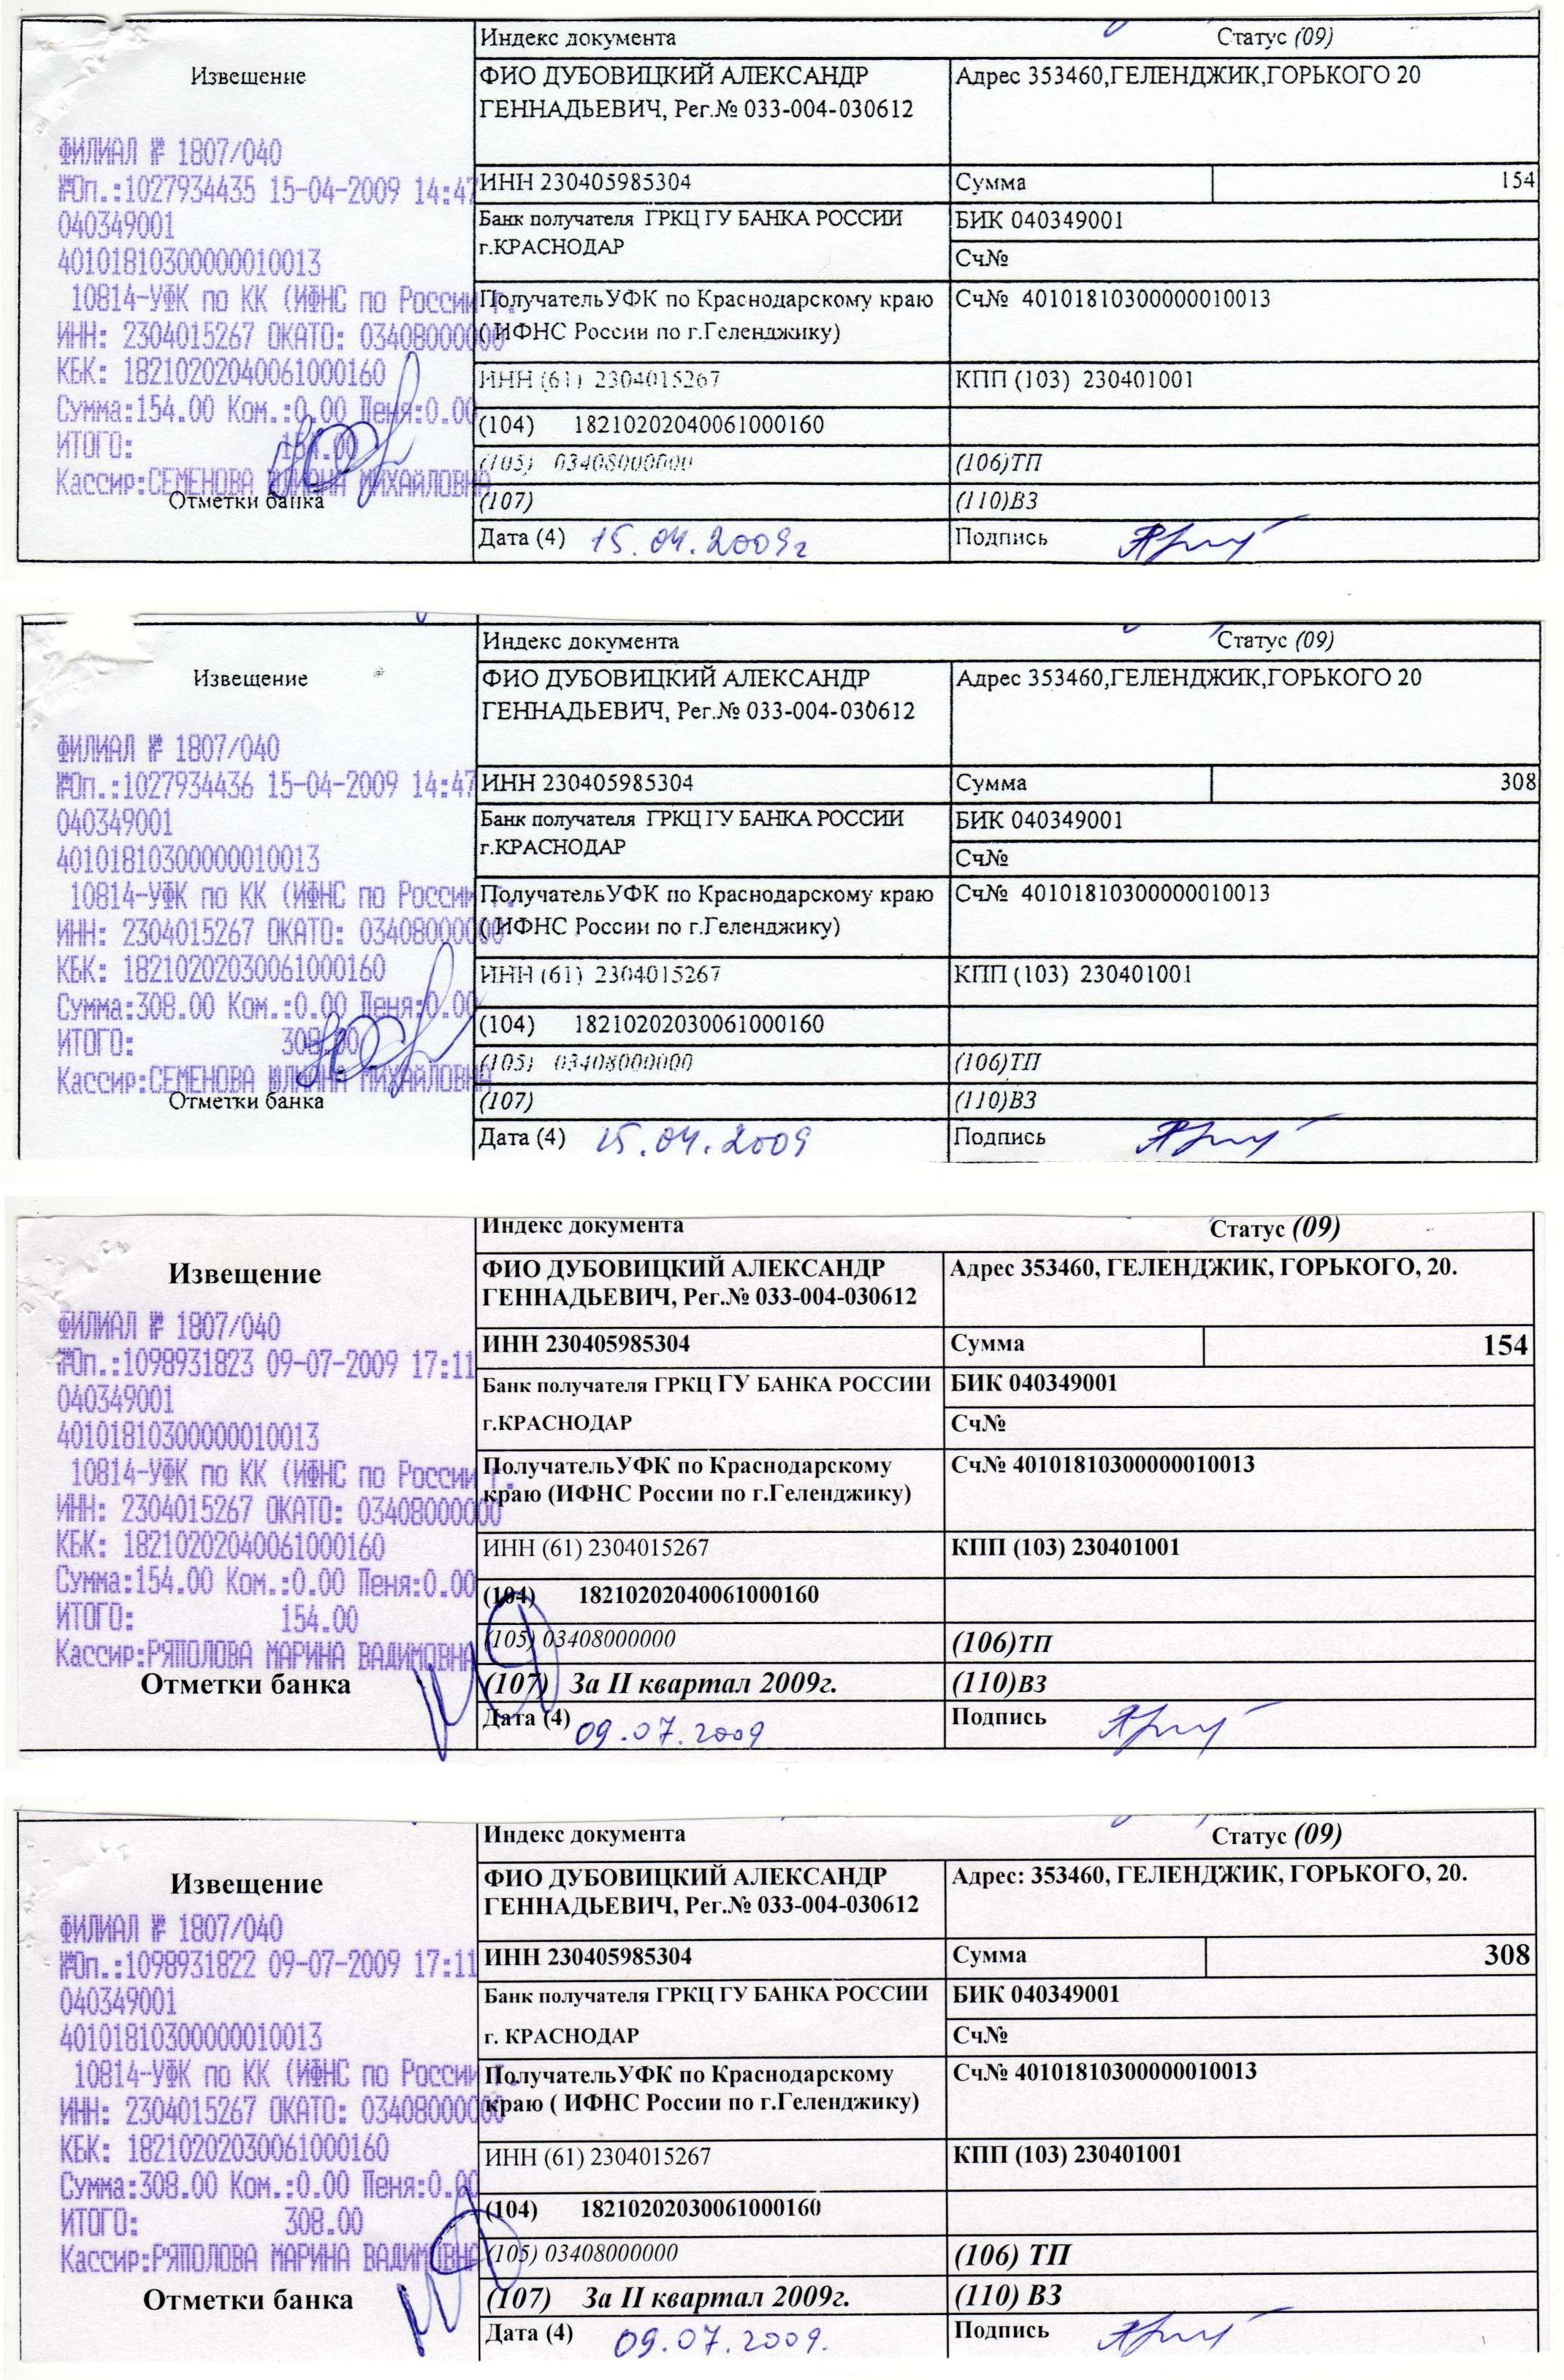 Индекс документа Статус (09)
Извещение
ФИО ДУБОВИЦКИЙ АЛЕКСАНДР Адрес 353460,ГЕЛЕНДЖИК,ГОРЬКОГО 20
ГЕННАДЬЕВИЧ, Рег.№ 033-004-030612
ФИЛИАЛ № 1807/040
№Оп.:1027934435 15-04-2009 14:47
ИНН 230405985304 Сумма 154
040349001
Банк получателя ГРКЦ ГУ БАНКА РОССИИ БИК 040349001
г.КРАСНОДАР Сч№
40101810300000010013
10814-УФК по КК (ИФНС по России г.
ПолучательУФК по Краснодарскому краю Сч№ 40101810300000010013
( ИФНС России по г.Геленджику)
ИНН: 2304015267 ОКАТО: 03408000000
КБК: 18210202040061000160
ИНН (61) 2304015267 КПП (103) 230401001
Сумма:154.00 Ком.:0.00 Пеня:0.00
(104) 18210202040061000160
ИТОГО: 154.00
(105) 03408000000 (106)ТП
Кассир:СЕМЕНОВА ЮЛИАНА МИХАЙЛОВНА
Отметки банка
(107) (110)ВЗ
Дата (4) 15.04.2009г Подпись
Индекс документа Статус (09)
Извещение
ФИО ДУБОВИЦКИЙ АЛЕКСАНДР Адрес 353460,ГЕЛЕНДЖИК,ГОРЬКОГО 20
ГЕННАДЬЕВИЧ, Рег.№ 033-004-030612
ФИЛИАЛ № 1807/040
№Оп.:1027934436 15-04-2009 14:47
ИНН 230405985304 Сумма 308
040349001
Банк получателя ГРКЦ ГУ БАНКА РОССИИ БИК 040349001
г.КРАСНОДАР Сч№
40101810300000010013
10814-УФК по КК (ИФНС по России г.
ПолучательУФК по Краснодарскому краю Сч№ 40101810300000010013
( ИФНС России по г.Геленджику)
ИНН: 2304015267 ОКАТО: 03408000000
КБК: 18210202030061000160
ИНН (61) 2304015267 КПП (103) 230401001
Сумма:308.00 Ком.:0.00 Пеня:0.00
(104) 18210202030061000160
ИТОГО: 308.00
(105) 03408000000 (106)ТП
Кассир:СЕМЕНОВА ЮЛИАНА МИХАЙЛОВНА
Отметки банка
(107) (110)ВЗ
Дата (4) 15.04.2009 Подпись
Индекс документа Статус (09)
Извещение
ФИО ДУБОВИЦКИЙ АЛЕКСАНДР Адрес 353460, ГЕЛЕНДЖИК, ГОРЬКОГО, 20.
ГЕННАДЬЕВИЧ, Рег.№ 033-004-030612
ФИЛИАЛ № 1807/040
ИНН 230405985304 Сумма 154
№Оп.:1098931823 09-07-2009 17:11
Банк получателя ГРКЦ ГУ БАНКА РОССИИ БИК 040349001
040349001
г.КРАСНОДАР Сч№
40101810300000010013
10814-УФК по КК (ИФНС по России г.
ПолучательУФК по Краснодарскому Сч№ 40101810300000010013
краю (ИФНС России по г.Геленджику)
ИНН: 2304015267 ОКАТО: 03408000000
КБК: 18210202040061000160
ИНН (61) 2304015267 КПП (103) 230401001
Сумма:154.00 Ком.:0.00 Пеня:0.00
(104) 18210202040061000160
ИТОГО: 154.00
(105) 03408000000 (106)ТП
Кассир:РЯПОЛОВА МАРИНА ВАДИМОВНА
Отметки банка
(107) За II квартал 2009г. (110)ВЗ
Дата (4) 09.07.2009 Подпись
Индекс документа Статус (09)
Извещение
ФИО ДУБОВИЦКИЙ АЛЕКСАНДР Адрес: 353460, ГЕЛЕНДЖИК, ГОРЬКОГО, 20.
ГЕННАДЬЕВИЧ, Рег.№ 033-004-030612
ФИЛИАЛ № 1807/040
ИНН 230405985304 Сумма 308
№Оп.:1098931822 09-07-2009 17:11
Банк получателя ГРКЦ ГУ БАНКА РОССИИ БИК 040349001
040349001
г. КРАСНОДАР Сч№
40101810300000010013
10814-УФК по КК (ИФНС по России г.
ПолучательУФК по Краснодарскому Сч№ 40101810300000010013
краю ( ИФНС России по г.Геленджику)
ИНН: 2304015267 ОКАТО: 03408000000
КБК: 18210202030061000160
ИНН (61) 2304015267 КПП (103) 230401001
Сумма:308.00 Ком.:0.00 Пеня:0.00
(104) 18210202030061000160
ИТОГО: 308.00
(105) 03408000000 (106) ТП
Кассир:РЯПОЛОВА МАРИНА ВАДИМОВНА
Отметки банка
(107) За II квартал 2009г. (110) ВЗ
Дата (4) 09.07.2009. Подпись